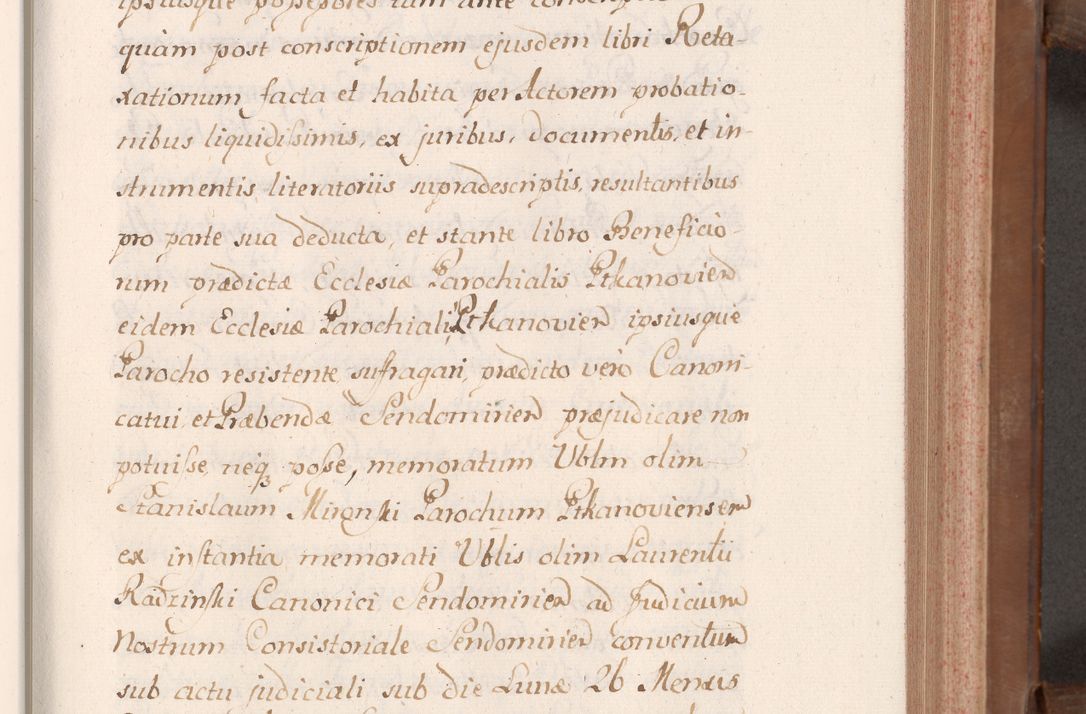 quàm post conscriptionem ejusdem libri Reta-
xationum facta et habita per Actorem probatio-
nibus liquidissimis, ex juribus, documentis, et in-
strumentis literatoriis supradescriptis, resultantibus
pro parte sua deducta, et stante libro Beneficio-
rum prædictæ Ecclesiæ Parochialis Ptkanovien
eidem Ecclesiæ Parochiali Ptkanovien ipsiusque
Parocho resistente, suffragari, prædicto vero Canoni-
catui, et Præbendæ Sendomirien præjudicare non
potuisse, neq posse, memoratum Vblm olim
Stanislaum Mironski Parochum Ptkanoviensem
ex instantia memorati Vblis olim Laurentii
Radzinski Canonici Sendomirien ad Judicium
Nostrum Consistoriale Sendomirien conventum
sub actu judiciali sub die Lunæ 26 Mensis